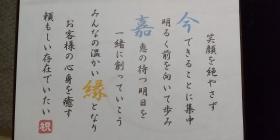 笑顔を絶やさず
今できることに集中
明るく前を向いて歩み
嘉恵の待つ明日を
一緒に創っていこう
みんなの温かい縁となり
お客様の心身を癒す
頼もしい存在でいたい